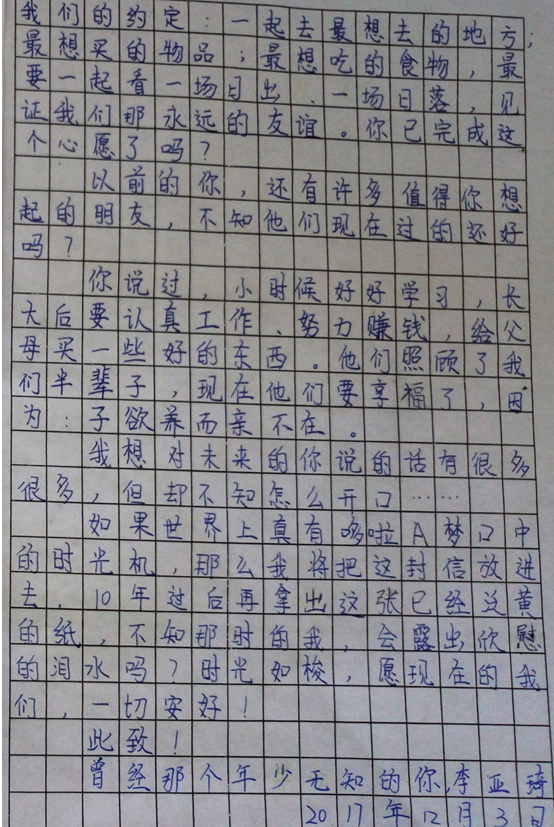 我们的约定：一起去最想去的地方；
最想买的物品；最想吃的食物，最
要一起看一场日出、一场日落，见
证我们那永远的友谊。你已完成这
个心愿了吗？
以前的你，还有许多值得你想
起的朋友，不知他们现在过的还好
吗？
你说过，小时候好好学习，长
大后要认真工作、努力赚钱，给父
母买一些好的东西。他们照顾了我
们半辈子，现在他们要享福了，因
为：子欲养而亲不在。
我想对未来的你说的话有很多
很多，但却不知怎么开口……
如果世界上真有哆啦A梦口中
的时光机，那么我将把这封信放进
去，10年过后再拿出这张已经泛黄
的纸，不知那时的我，会露出欣慰
的泪水吗？时光如梭，愿现在的我
们，一切安好！
此致！
曾经那个年少无知的你，李亚琦
2017年12月3日